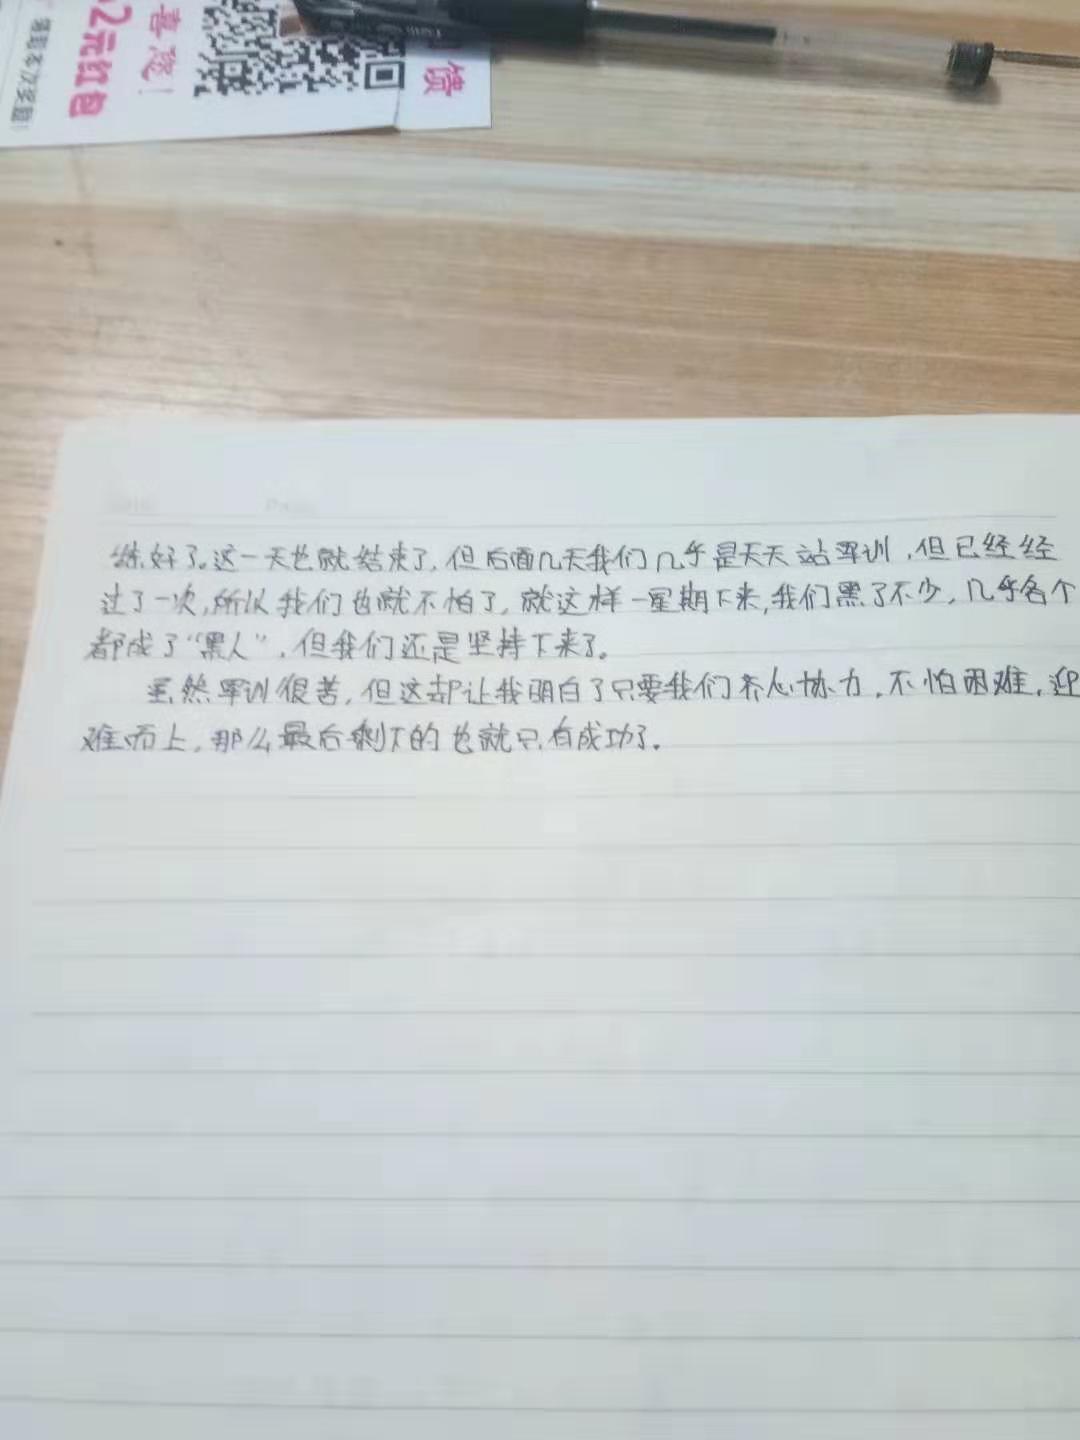 喜欢!
2元红包
领取本次奖励!
馈
练好了。这一天也就结束了,但后面几天我们几乎是天天站军训,但已经经
过了一次,所以我们也就不怕了,就这样一星期下来,我们黑了不少,几乎各个
都成了“黑人”,但我们还是坚持下来了。
虽然军训很苦,但这却让我明白了只要我们齐心协力,不怕困难,迎
难而上,那么最后剩下的也就只有成功了。